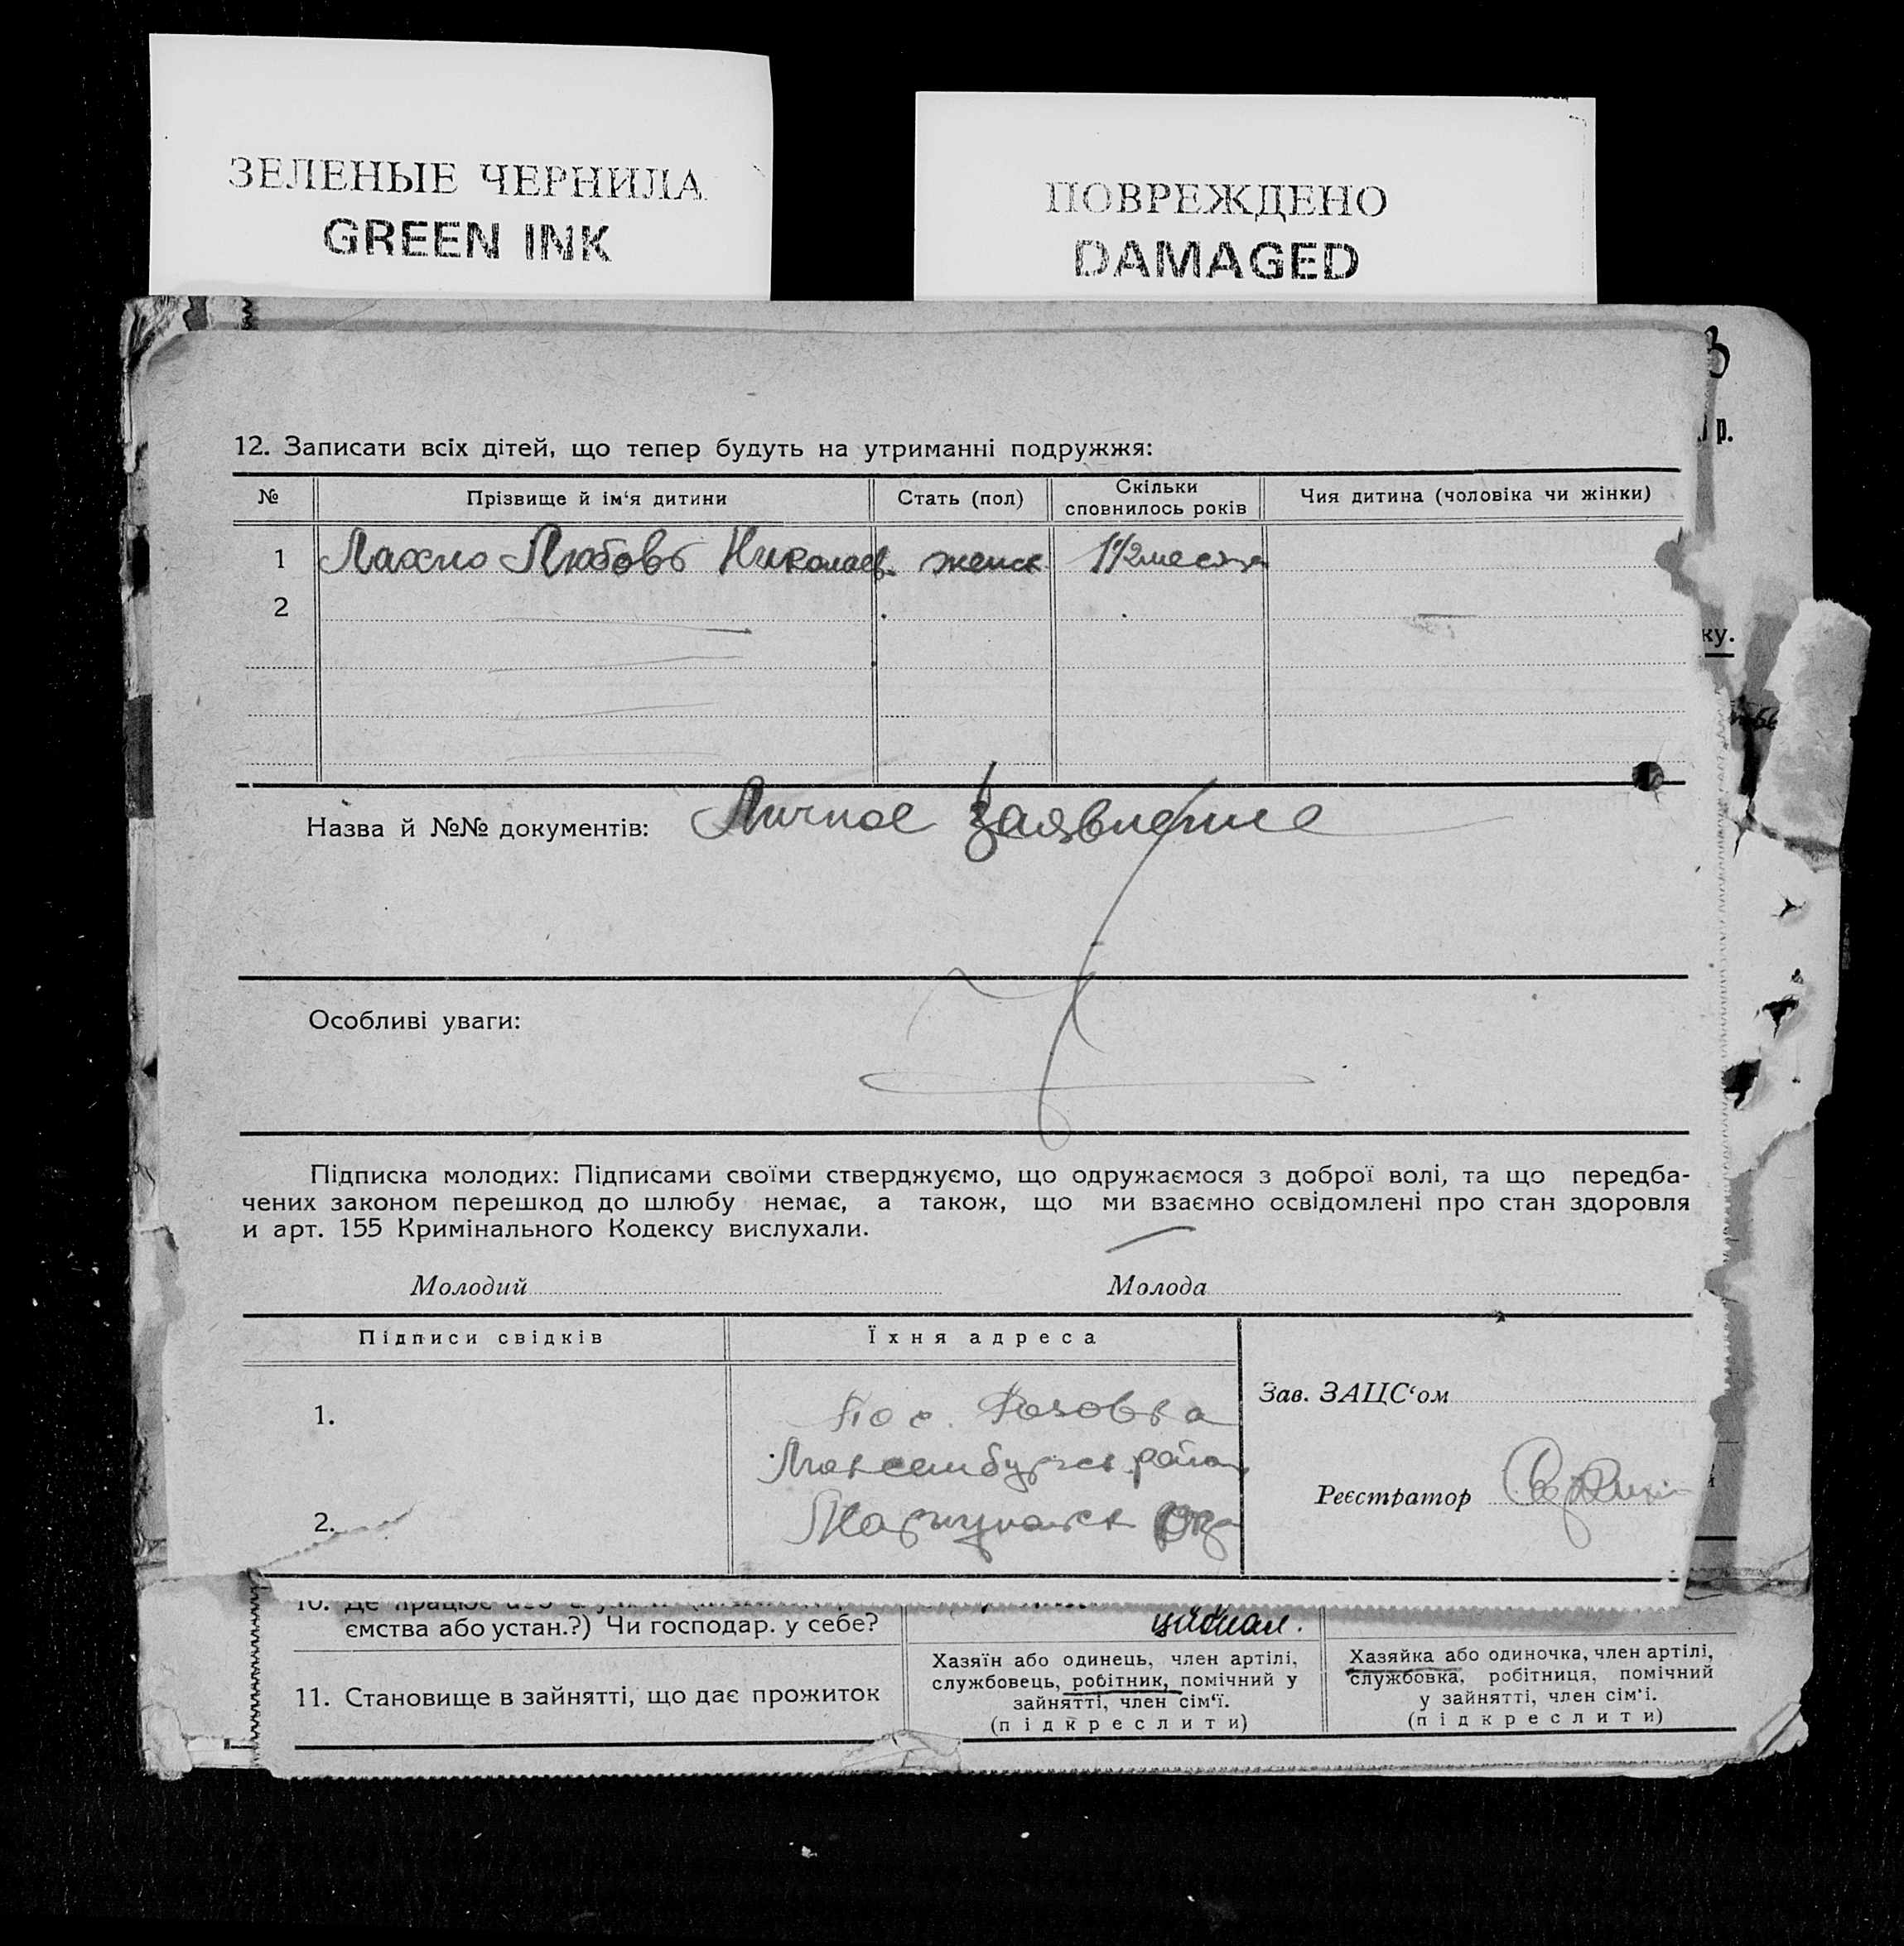 ЗЕЛЕНЫЕ ЧЕРНИЛА
GREEN INK
ПОВРЕЖДЕНО
DAMAGED
р.
ку.
12. Записати всіх дітей, що тепер будуть на утриманні подружжя:
№ Прізвище й ім‘я дитини Стать (пол) Скільки сповнилось років Чия дитина (чоловіка чи жінки)
1 Лахно Любовь Николаев. женск 1 1/2 месяца
2
Назва й №№ документів: Личное Заявление
Особливі уваги:
Підписка молодих: Підписами своїми стверджуємо, що одружаємося з доброї волі, та що передба-
чених законом перешкод до шлюбу немає, а також, що ми взаємно освідомлені про стан здоровля
и арт. 155 Кримінального Кодексу вислухали.
Молодий Молода
Підписи свідків Їхня адреса
Зав. ЗАЦС‘ом
1. Пос. Розовка
Люксембургск район
Реєстратор
2. Мариупольск Окр
10. Де працює
ємства або устан.?) Чи господар. у себе?
11. Становище в зайнятті, що дає прожиток
Хазяїн або одинець, член артілі,
службовець, робітник, помічний у
зайнятті, член сім‘ї.
(підкреслити)
Хазяйка або одиночка, член артілі,
службовка, робітниця, помічний
у зайнятті, член сім‘і.
(підкреслити)